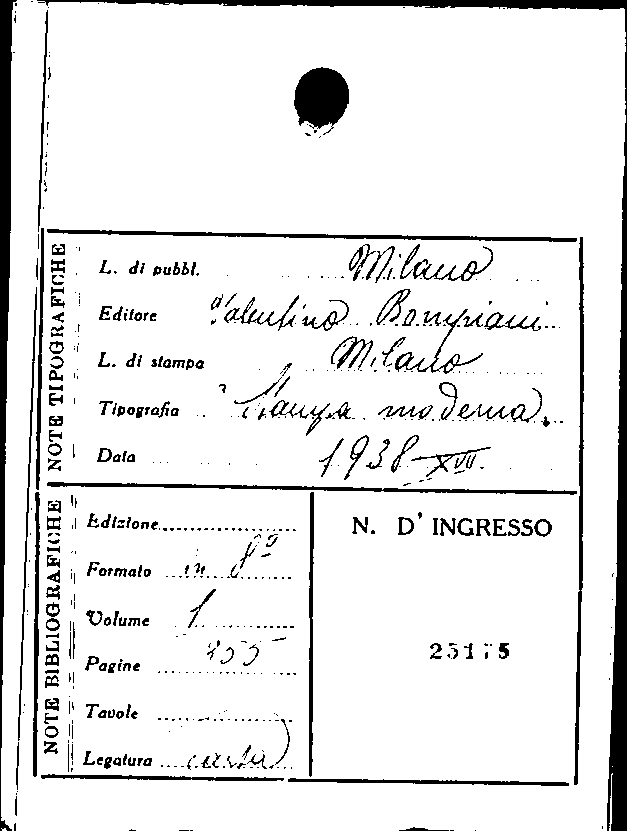 NOTE TIPOGRAFICHE
L. di pubbl. Milano
Editore Valentino Bompiani
L. di stampa Milano
Tipografia "Stampa moderna"
Data 1938-XVII.
NOTE BIBLIOGRAFICHE
Edizione
Formato in 8º
Volume 1
Pagine 355
Tavole
Legatura carta
N. D' INGRESSO
25175